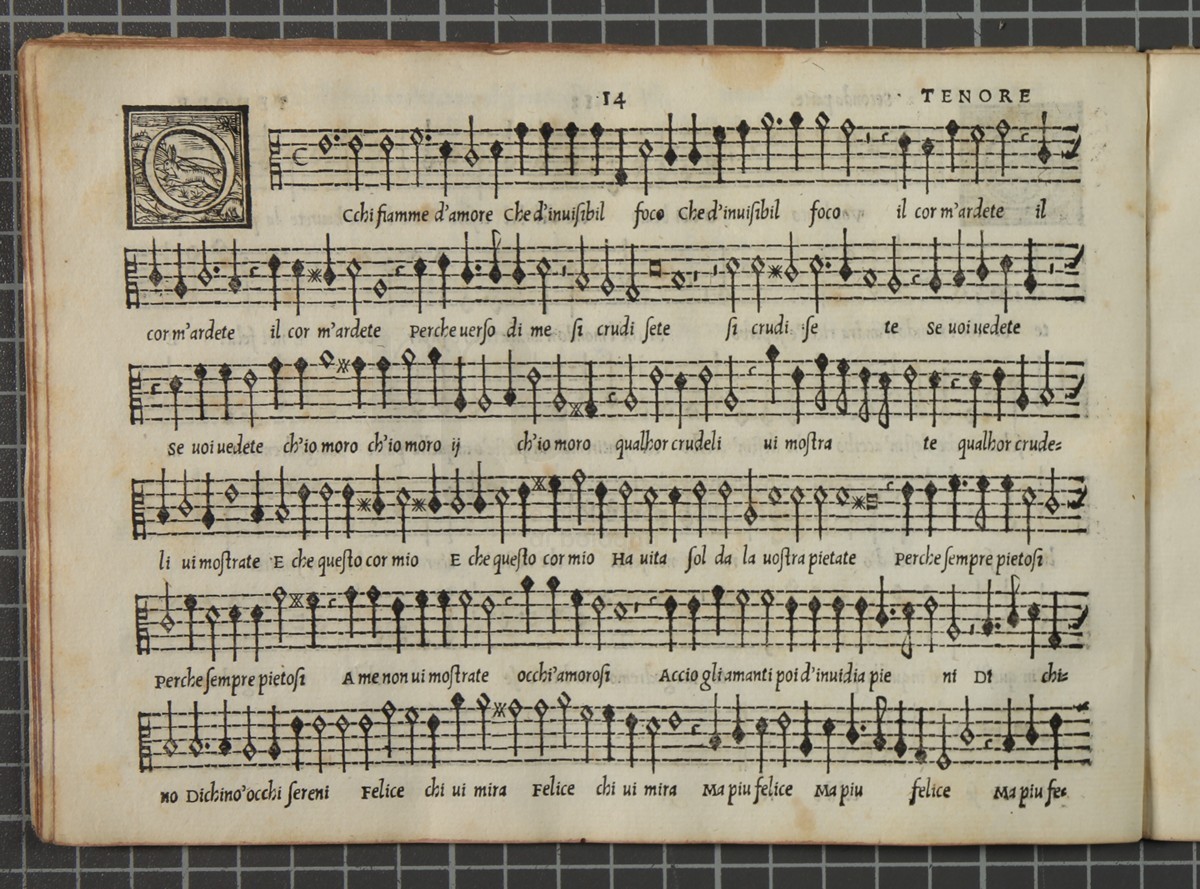 14 TENORE
OCchi fiamme d'amore Che d'inuiſibil foco Che d'inuiſibil foco il cor m'ardete il
cor m'ardete il cor m'ardete Perche uerſo di me ſi crudi ſete ſi crudi ſe te Se uoi uedete
Se uoi uedete ch'io moro ch'io moro ij ch'io moro qualhor crudeli ui moſtra te qualhor crude=
li ui moſtrate E che queſto cor mio E che queſto cor mio Ha uita ſol da la uoſtra pietate Perche ſempre pietoſi
Perche ſempre pietoſi A me non ui moſtrate occhi'amoroſi Accio gli amanti poi d'inuidia pie ni Di chi=
no Dichino'occhi ſereni Felice chi ui mira Felice chi ui mira Ma piu felice Ma piu felice Ma piu fe=